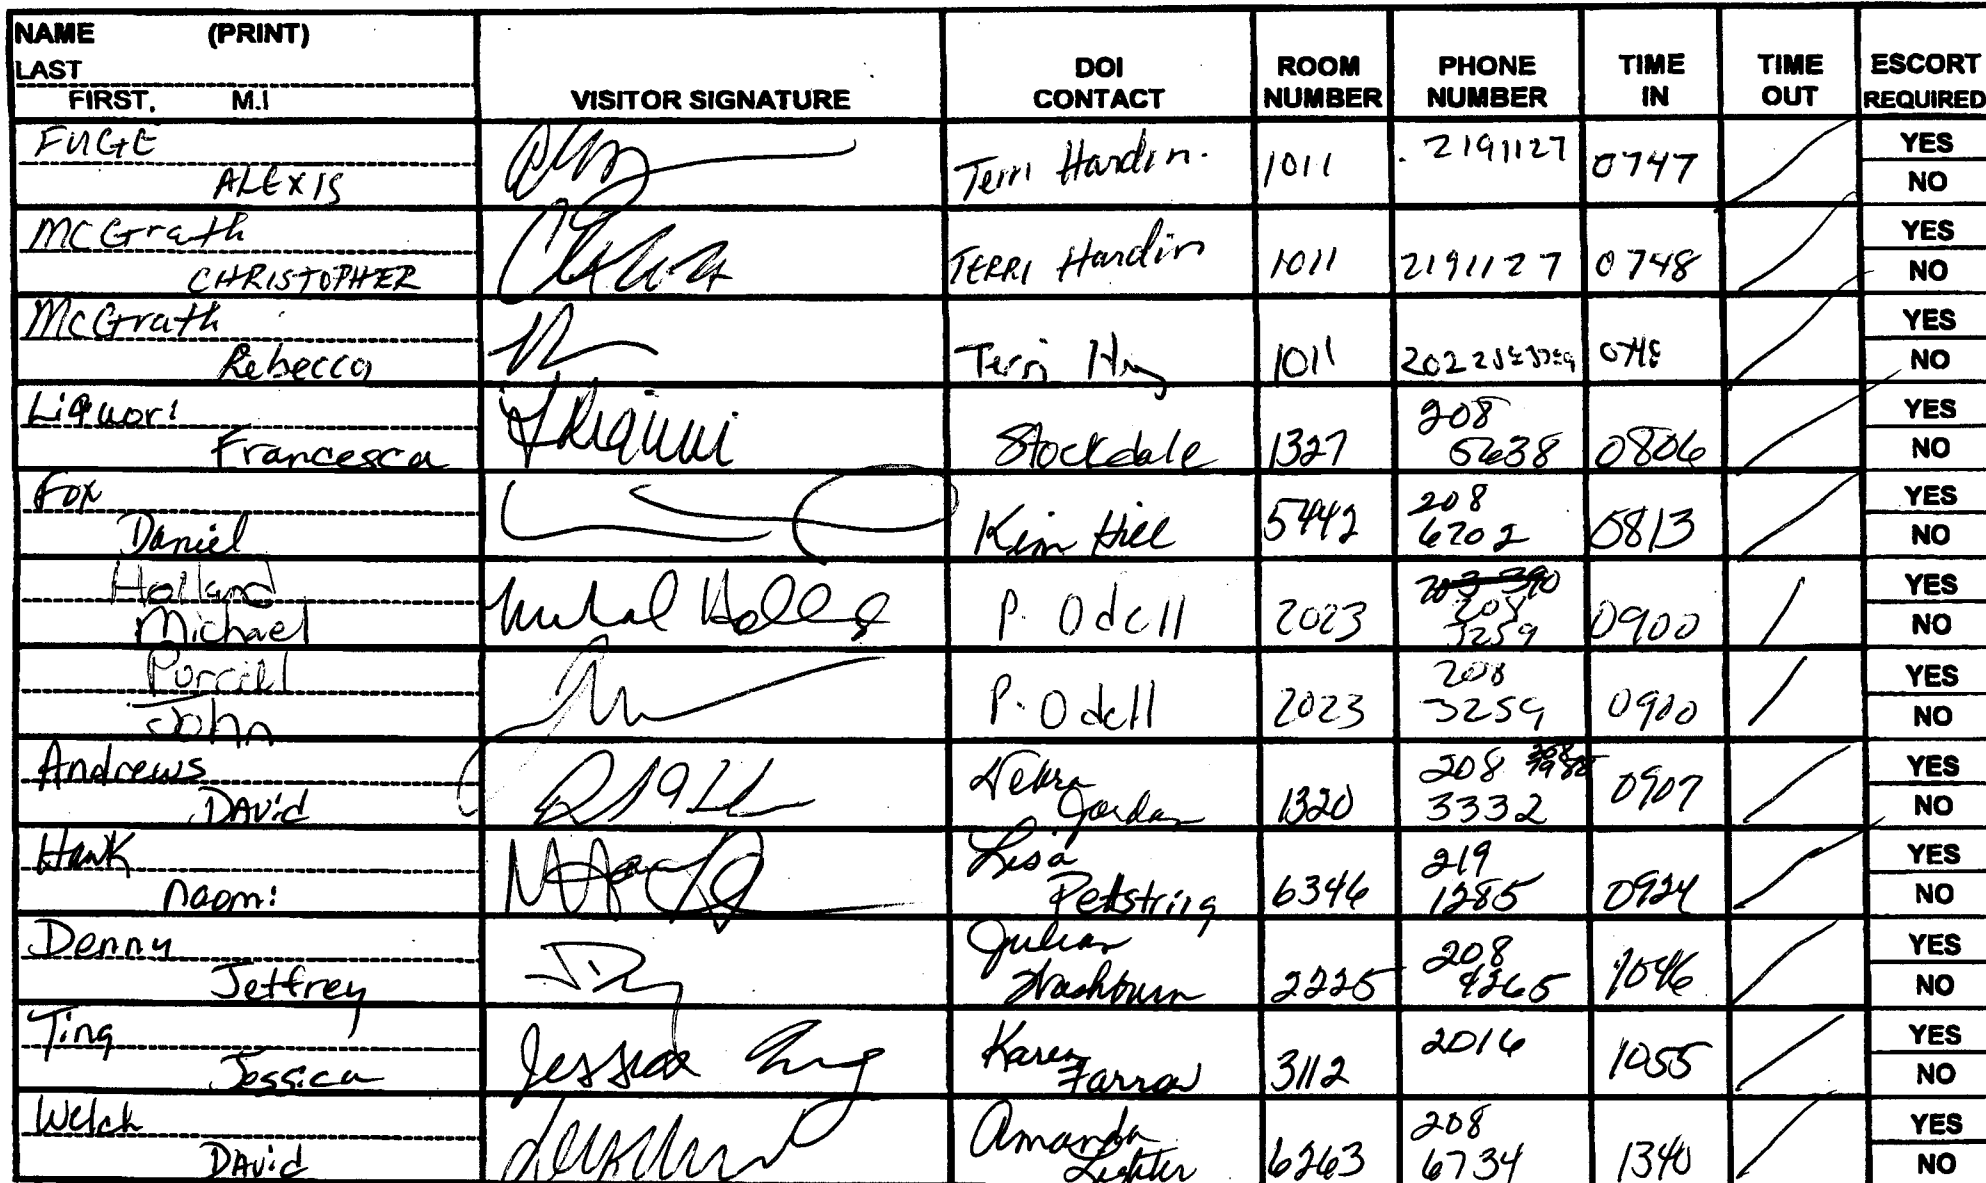 NAME (PRINT)
LAST
FIRST, M.I
VISITOR SIGNATURE
DOI CONTACT
ROOM NUMBER
PHONE NUMBER
TIME IN
TIME OUT
ESCORT REQUIRED
FUGE
ALEXIS
Terri Hardin.
1011
2191127
0747
YES
NO
McGrath
CHRISTOPHER
TERRI Hardin
1011
2191127
0748
YES
NO
McGrath
Rebecca
Terri
1011
202
YES
NO
Liquori
Francesca
Stockdale
1327
208
5638
0806
YES
NO
Fox
Daniel
Kim Hill
5442
208
6702
0813
YES
NO
Holland
Michael
P. Odell
2023
208
3259
0900
YES
NO
Purcell
John
P. Odell
2023
208
3259
0900
YES
NO
Andrews
DAVid
Debra
Jordan
1320
208
3332
0907
YES
NO
Hawk
naomi
Lisa
6346
219
1285
0924
YES
NO
Denny
Jeffrey
Julian
Washburn
2225
208
4265
1046
YES
NO
Ting
Jessica
Jessica Ting
Karen
Farrow
3112
2016
1055
YES
NO
Welch
DAVid
Amanda
6263
208
6734
1340
YES
NO